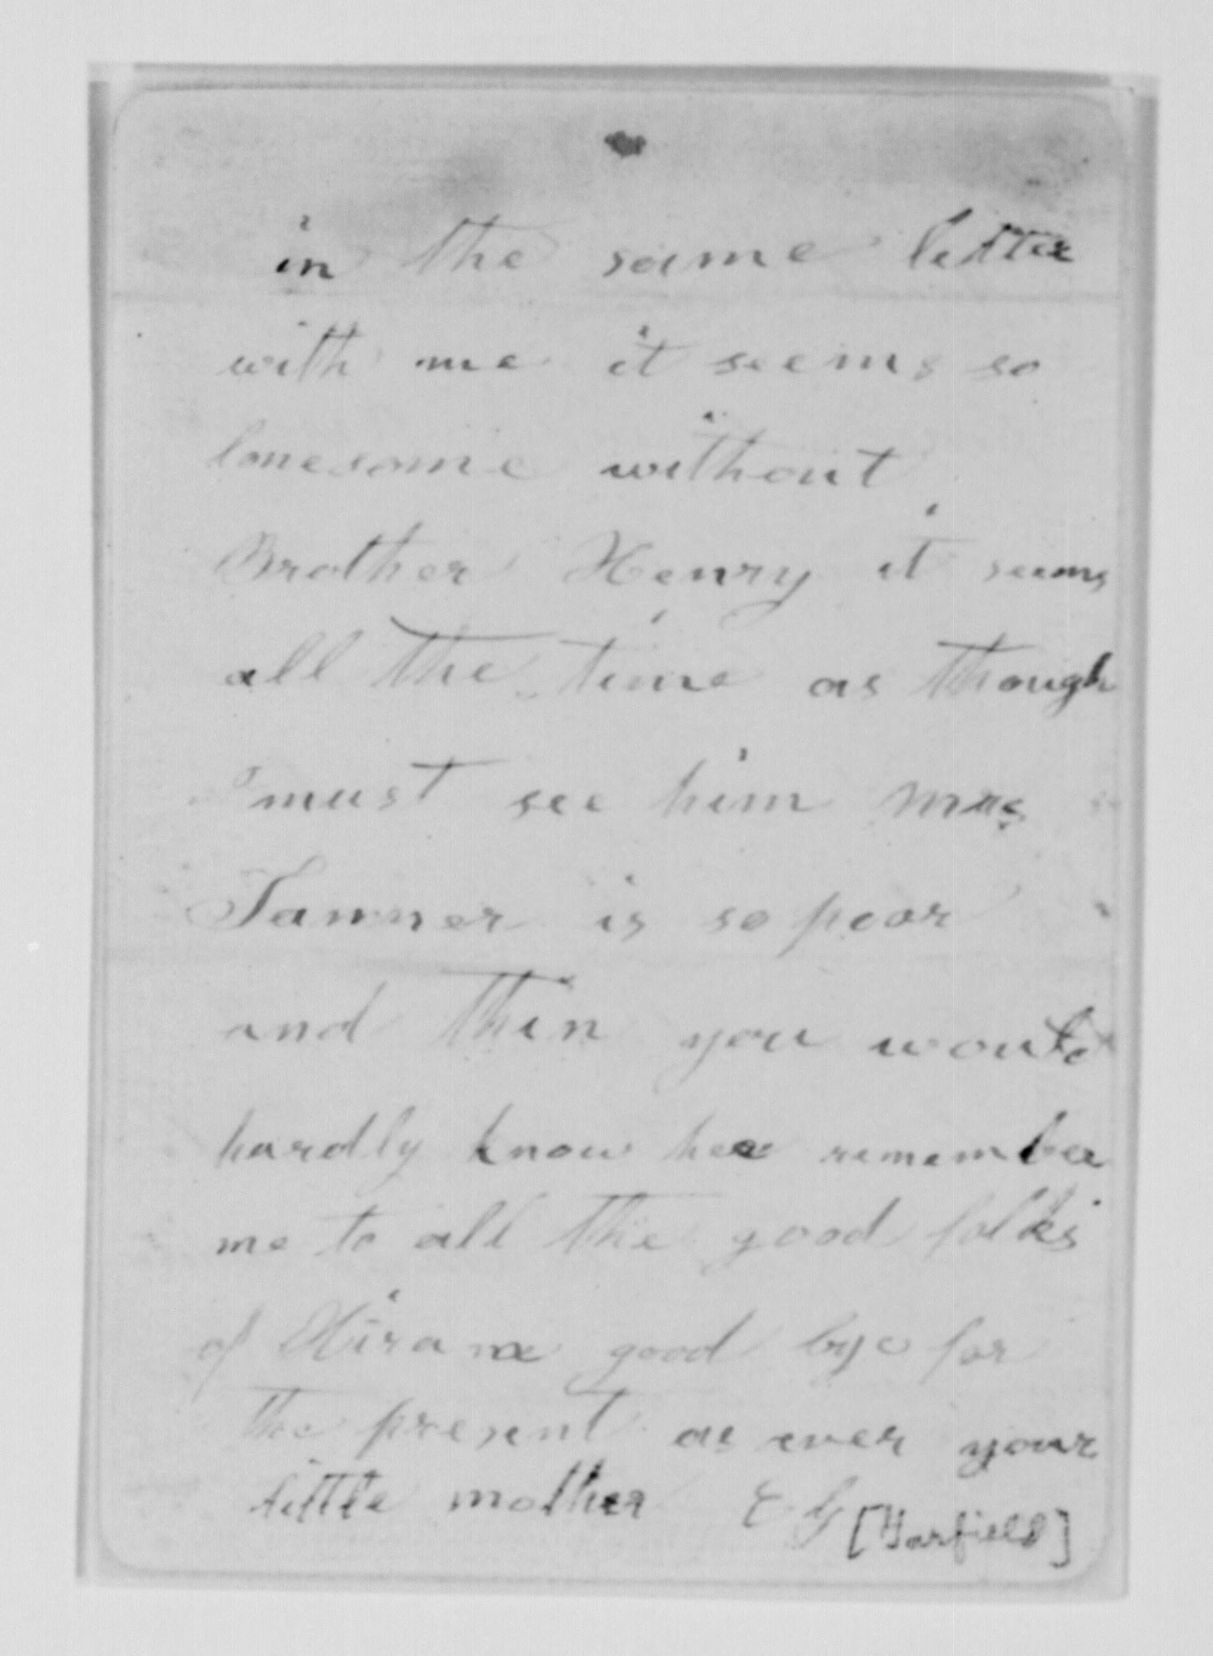 in the same letter
with me it seems so
lonesome without
Brother Henry it seems
all the time as though
I must see him Mrs
Tanner is so poor
and thin you would
hardly know her remember
me to all the good folks
of Hiram good bye for
the present as ever your
little mother E G [Garfield]